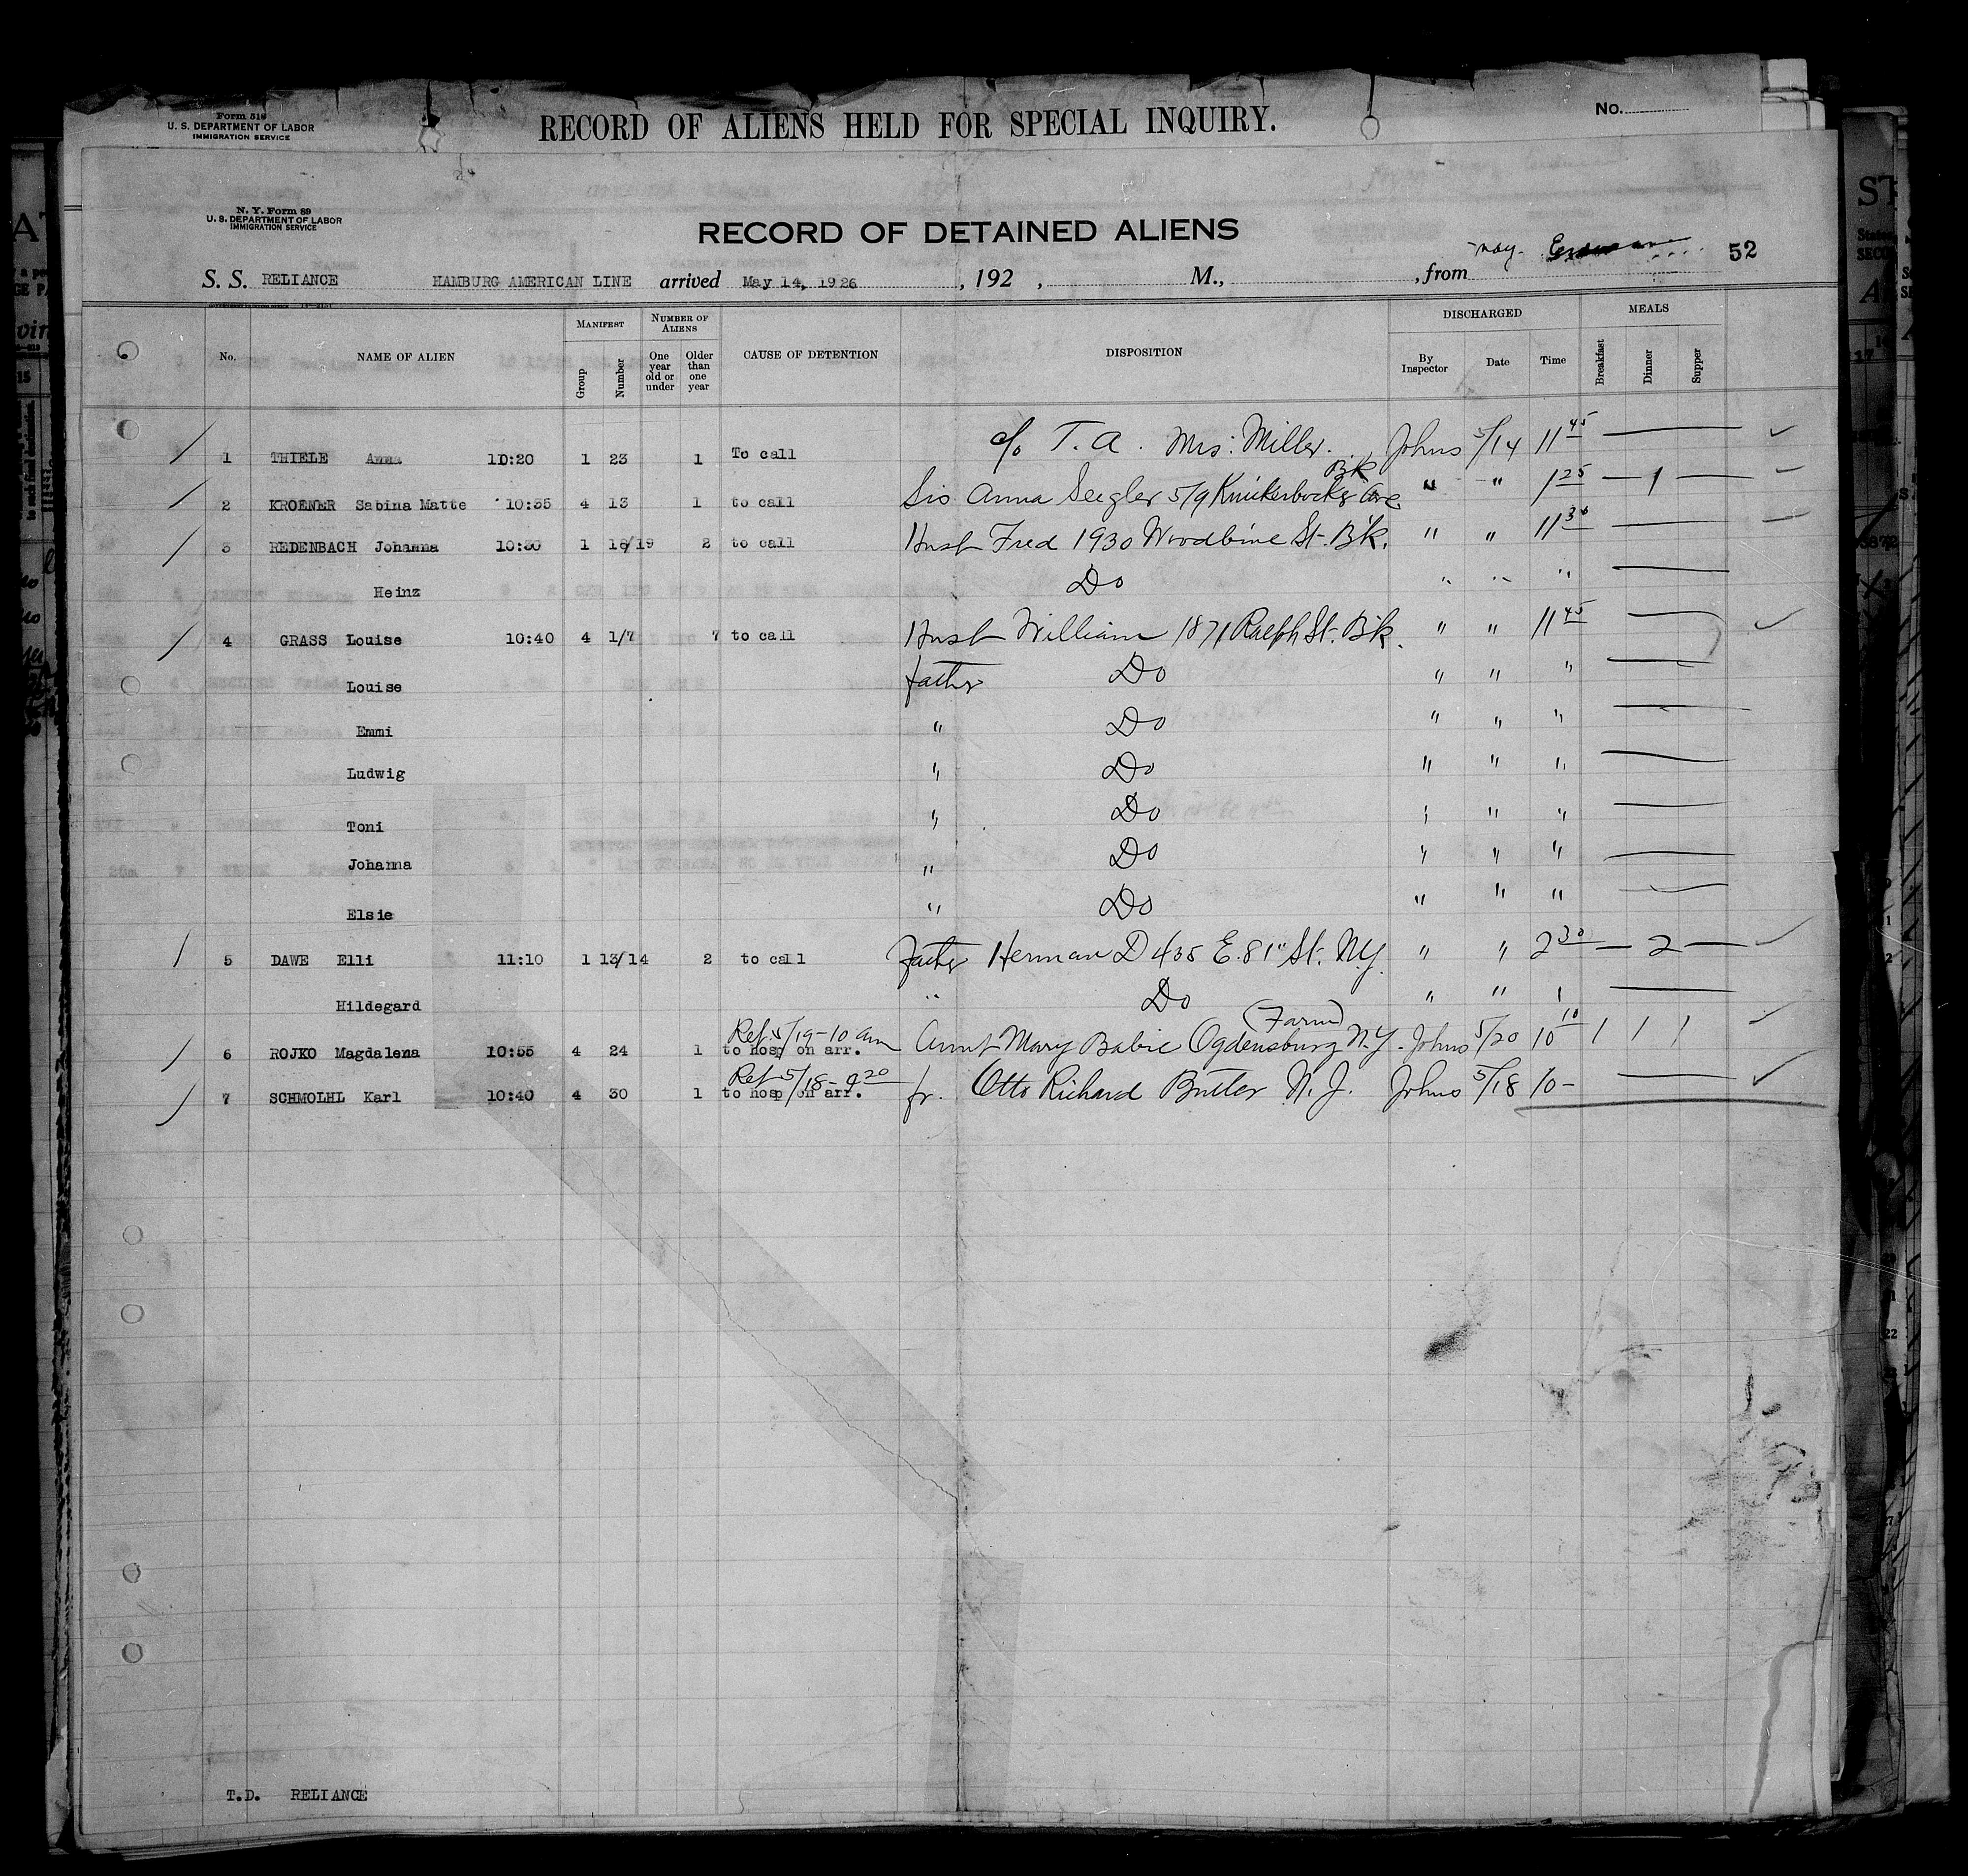 Form 518
U. S. DEPARTMENT OF LABOR
IMMIGRATION SERVICE
RECORD OF ALIENS HELD FOR SPECIAL INQUIRY.
No.
N. Y. Form 89
U. S. DEPARTMENT OF LABOR
IMMIGRATION SERVICE
RECORD OF DETAINED ALIENS
52
S. S. RELIANCE HAMBURG AMERICAN LINE arrived May 14, 1926 , 192 , M., , from
No. NAME OF ALIEN MANIFEST Group Number NUMBER OF ALIENS One year old or under Older than one year CAUSE OF DETENTION DISPOSITION DISCHARGED By Inspector Date Time MEALS Breakfast Dinner Supper
1 THIELE Anna 10:20 1 23 1 To call c/o T. A. Mrs. Miller. Johns 5/14 11 45
2 KROENER Sabina Matte 10:35 4 13 1 to call Sis Anna Seegler 519 Knickerbocker Ave Bk " " 1 25 — 1 —
3 REDENBACH Johanna 10:30 1 18/19 2 to call Husb Fred 1930 Woodbine St. Bk. " " 11 30
Heinz Do " " "
4 GRASS Louise 10:40 4 1/7 7 to call Husb William 1871 Ralph St. Bk. " " 11 45
Louise father Do " " "
Emmi " Do " " "
Ludwig " Do " " "
Toni " Do " " "
Johanna " Do " " "
Elsie " Do " " "
5 DAWE Elli 11:10 1 13/14 2 to call Father Herman D 435 E. 81" St. N.Y. " " 2 30 — 2 —
Hildegard " Do " " "
6 ROJKO Magdalena 10:55 4 24 1 Ref. 5/19-10 am to hosp on arr. Aunt Mary Babic Ogdensburg N.Y. (Farm) Johns 5/20 10 10 1 1 1
7 SCHMOLHL Karl 10:40 4 30 1 Ref 5/18-9 20 to hosp on arr. fr. Otto Richard Butler N. J. Johns 5/18 10 -
T.D. RELIANCE